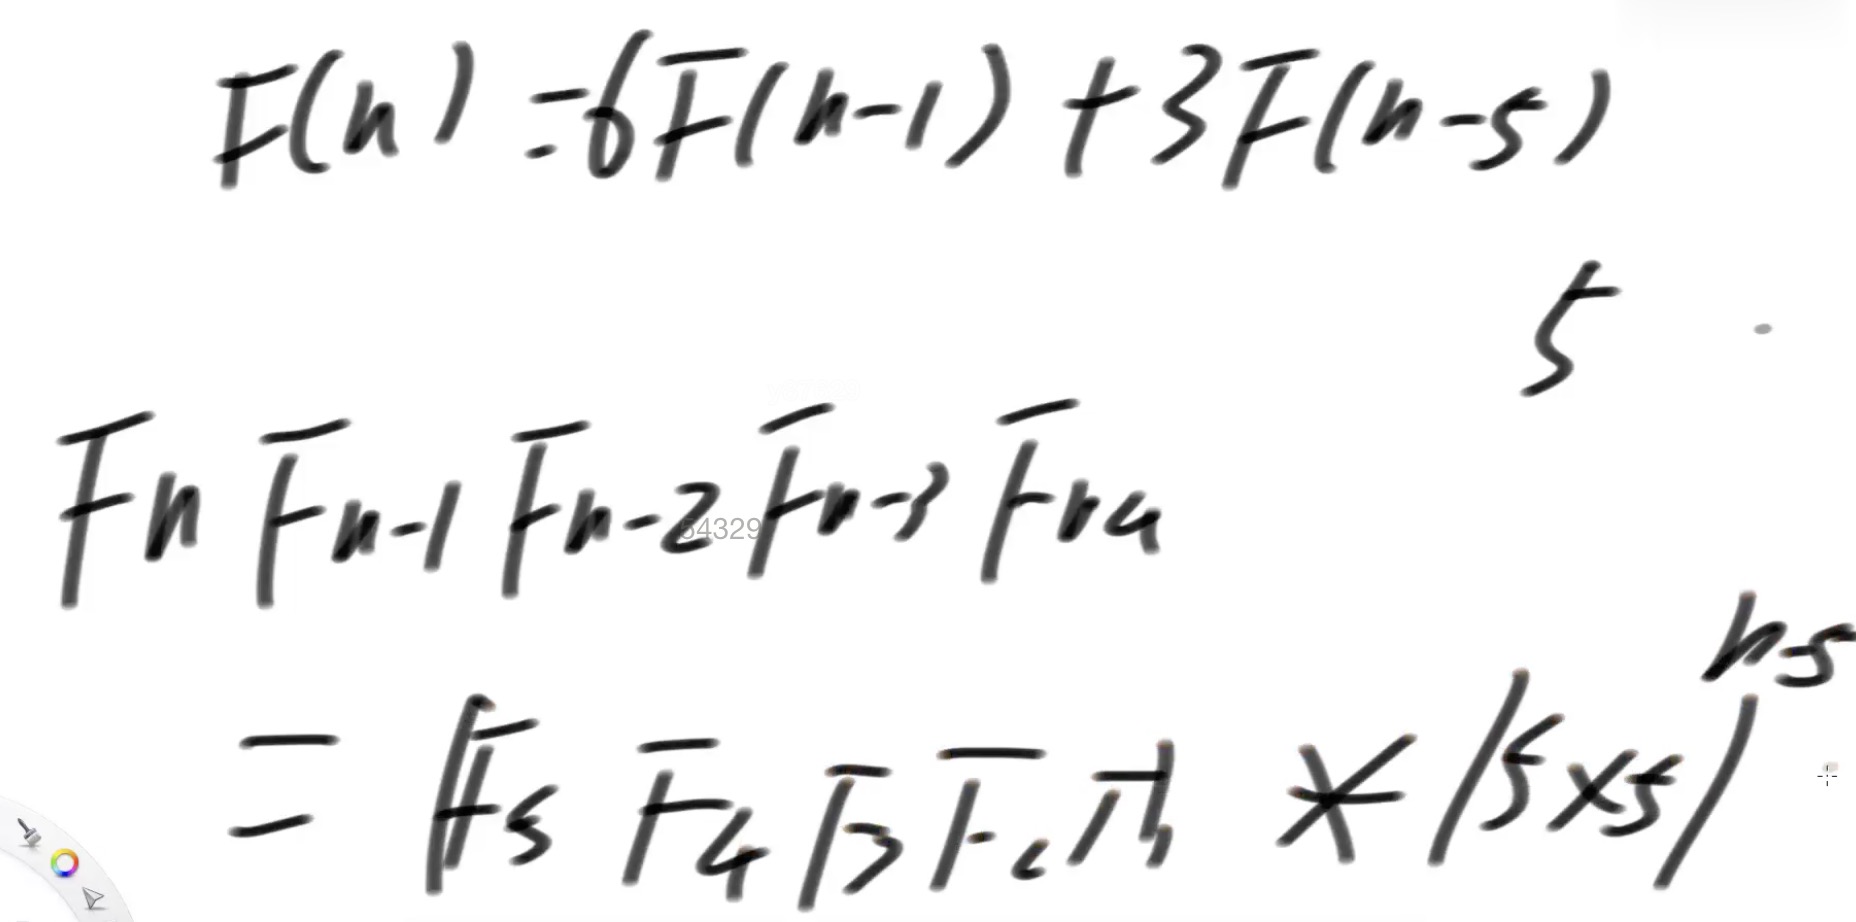 F(n) = 6F(n-1) + 3F(n-5)
5
Fn Fn-1 Fn-2 Fn-3 Fn4
54329
n-5
= |F5 F4 F3 F2 F1 * (5×5)